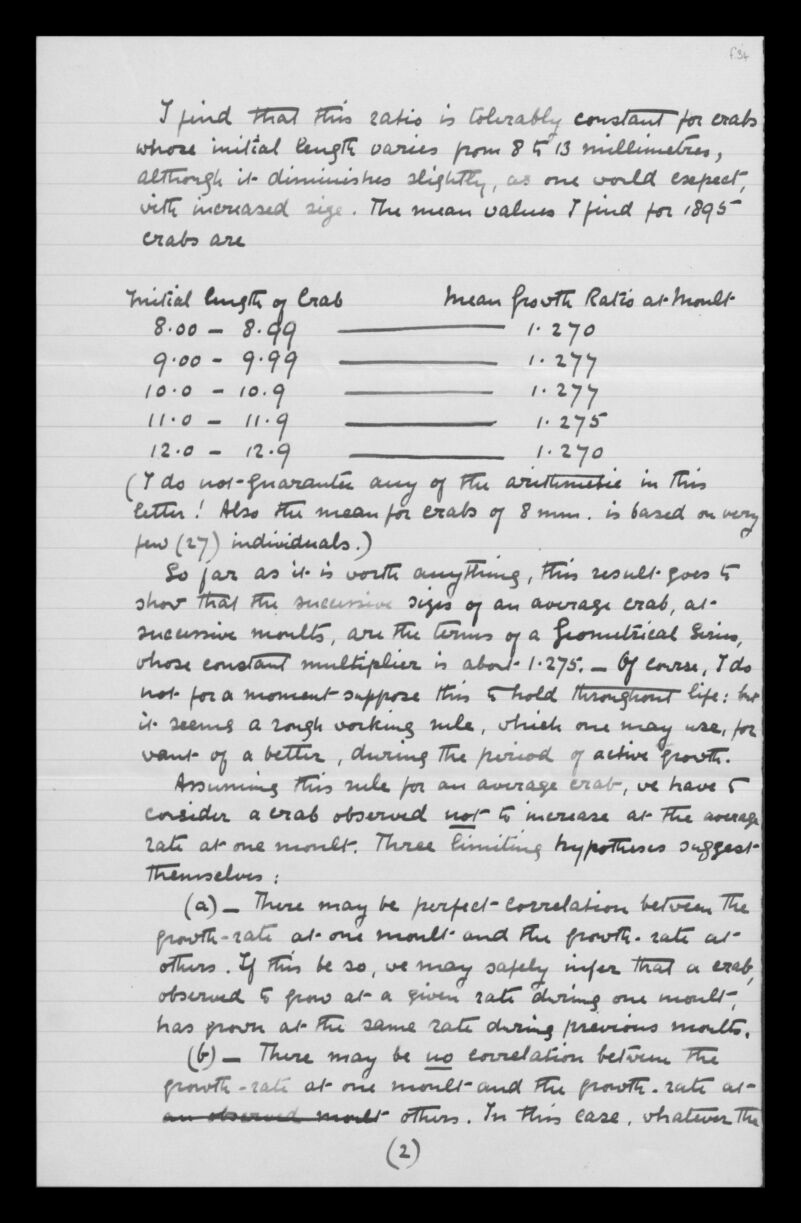 f.34
I find that this ratio is tolerably constant for crabs
whose initial length varies from 8 to 13 millimetres,
although it diminishes slightly, as one would expect,
with increased size. The mean values I find for 1895
crabs are
Initial length of Crab Mean Growth Ratio at Moult
8.00 – 8.99 ——— 1.270
9.00 – 9.99 ——— 1.277
10.0 – 10.9 ——— 1.277
11.0 – 11.9 ——— 1.275
12.0 – 12.9 ——— 1.270
(I do not guarantee any of the arithmetic in this
letter! Also the mean for crabs of 8 mm. is based on very
few (27) individuals.)
So far as it is worth anything, this result goes to
show that the successive sizes of an average crab, at
successive moults, are the terms of a Geometrical Series,
whose constant multiplier is about 1.275. – Of course, I do
not for a moment suppose this to hold throughout life: but
it seems a rough working rule, which one may use, for
want of a better, during the period of active growth.
Assuming this rule for an average crab, we have to
consider a crab observed not to increase at the average
rate at one moult. Three limiting hypotheses suggest
themselves:
(a) – There may be perfect correlation between the
growth-rate at one moult and the growth-rate at
others. If this be so, we may safely infer that a crab,
observed to grow at a given rate during one moult,
has grown at the same rate during previous moults.
(b) – There may be no correlation between the
growth-rate at one moult and the growth-rate at
an observed moult others. In this case, whatever the
(2)